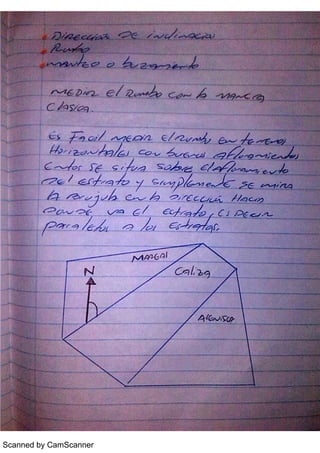 Dirección de inclinación
Rumbo
manteo o buzamiento
Medir el Rumbo con la manera
Clasica.
Es Facil medir el rumbo en terrenos
Horizontales con buenos afloramientos
se situa sobre el afloramiento
del estrato y simplemente se mira
la Brujula con la direccion Hacia
donde va el estrato, es decir
paralelas a los estratos.
Margal
N
Caliza
Arenisca
Scanned by CamScanner